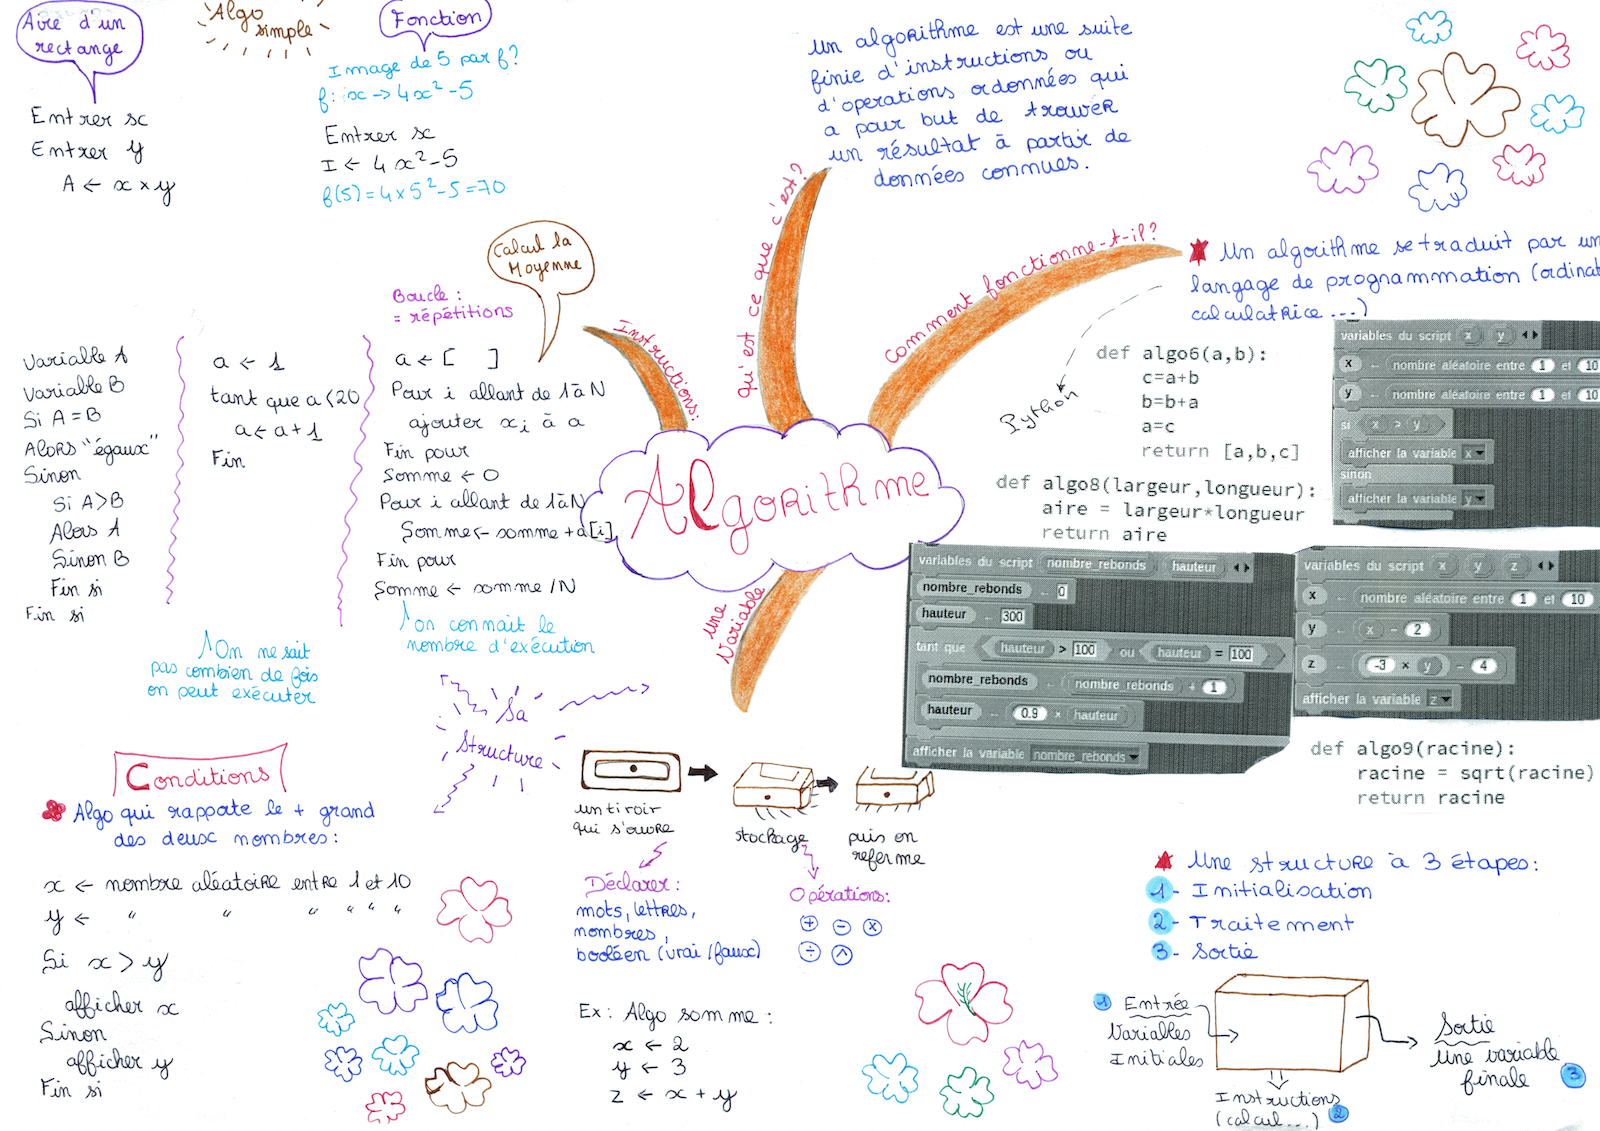 Aire d'un
rectange
Algo
simple
Fonction
Entrer x
Entrer y
A ← x × y
Image de 5 par f?
f: x → 4x² - 5
Entrer x
I ← 4x² - 5
f(5) = 4 × 5² - 5 = 70
un algorithme est une suite
finie d'instructions ou
d'operations ordonnées qui
a pour but de trouver
un résultat à partir de
données connues.
qu'est ce que c'est?
Comment fonctionne-t-il?
Un algorithme se traduit par un
langage de programmation (ordinat
calculatrice ...)
Python
def algo6(a,b):
c=a+b
b=b+a
a=c
return [a,b,c]
def algo8(largeur,longueur):
aire = largeur*longueur
return aire
variables du script x y
x ← nombre aléatoire entre 1 et 10
y ← nombre aléatoire entre 1 et 10
si x > y
afficher la variable x
sinon
afficher la variable y
variables du script nombre_rebonds hauteur
nombre_rebonds ← 0
hauteur ← 300
tant que hauteur > 100 ou hauteur = 100
nombre_rebonds ← nombre rebonds + 1
hauteur ← 0.9 × hauteur
afficher la variable nombre_rebonds
variables du script x y z
x ← nombre aléatoire entre 1 et 10
y ← x - 2
z ← -3 × y - 4
afficher la variable z
def algo9(racine):
racine = sqrt(racine)
return racine
Algorithme
Instructions:
Calcul la
Moyenne
Boucle :
= répétitions
Variable A
Variable B
Si A = B
Alors "égaux"
Sinon
Si A > B
Alors A
Sinon B
Fin si
Fin si
a ← 1
tant que a < 20
a ← a + 1
Fin
On ne sait
pas combien de fois
on peut exécuter
a ← [ ]
Pour i allant de 1 à N
ajouter xi à a
Fin pour
Somme ← 0
Pour i allant de 1 à N
Somme ← somme + a[i]
Fin pour
Somme ← somme / N
on connait le
nombre d'exécution
une
Variable
Sa
structure
un tiroir
qui s'ouvre
stockage
puis on
referme
Déclarer :
mots, lettres,
nombres,
booléen (vrai/faux)
Opérations:
+ - x
÷ ^
Ex : Algo somme :
x ← 2
y ← 3
z ← x + y
Conditions
Algo qui rapporte le + grand
des deux nombres :
x ← nombre aléatoire entre 1 et 10
y ← " " " " " "
Si x > y
afficher x
Sinon
afficher y
Fin si
Une structure à 3 étapes :
1- Initialisation
2- Traitement
3- Sortie
1 Entrée
Variables
Initiales
Instructions
(calcul...) 2
Sortie
une variable
finale 3